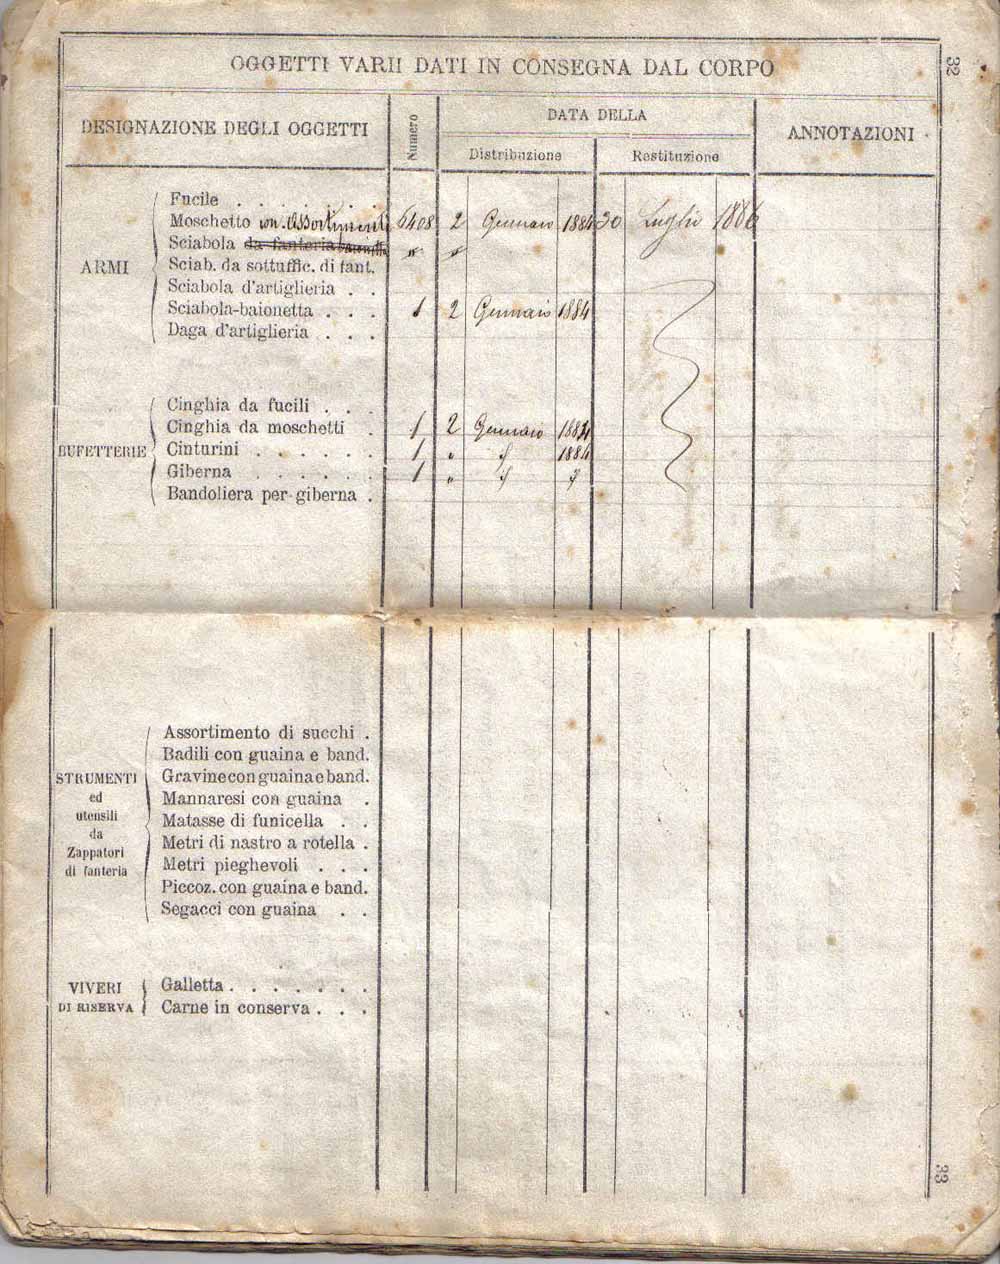 32
OGGETTI VARII DATI IN CONSEGNA DAL CORPO
DESIGNAZIONE DEGLI OGGETTI
Numero
DATA DELLA
Distribuzione
Restituzione
ANNOTAZIONI
ARMI
Fucile . . . . . . . .
Moschetto con Assortimenti 6408 2 Gennaio 1884 30 Luglio 1886
Sciabola da fanteria baionetta " "
Sciab. da sottuffic. di fant.
Sciabola d'artiglieria . .
Sciabola-baionetta . . . 1 2 Gennaio 1884
Daga d'artiglieria . . .
BUFETTERIE
Cinghia da fucili . . .
Cinghia da moschetti . 1 2 Gennaio 1884
Cinturini . . . . . . 1 " " 1884
Giberna . . . . . . 1 " " "
Bandoliera per giberna .
STRUMENTI
ed
utensili
da
Zappatori
di fanteria
Assortimento di succhi .
Badili con guaina e band.
Gravine con guaina e band.
Mannaresi con guaina .
Matasse di funicella . .
Metri di nastro a rotella .
Metri pieghevoli . . .
Piccoz. con guaina e band.
Segacci con guaina . .
VIVERI
DI RISERVA
Galletta . . . . . . .
Carne in conserva . . .
33